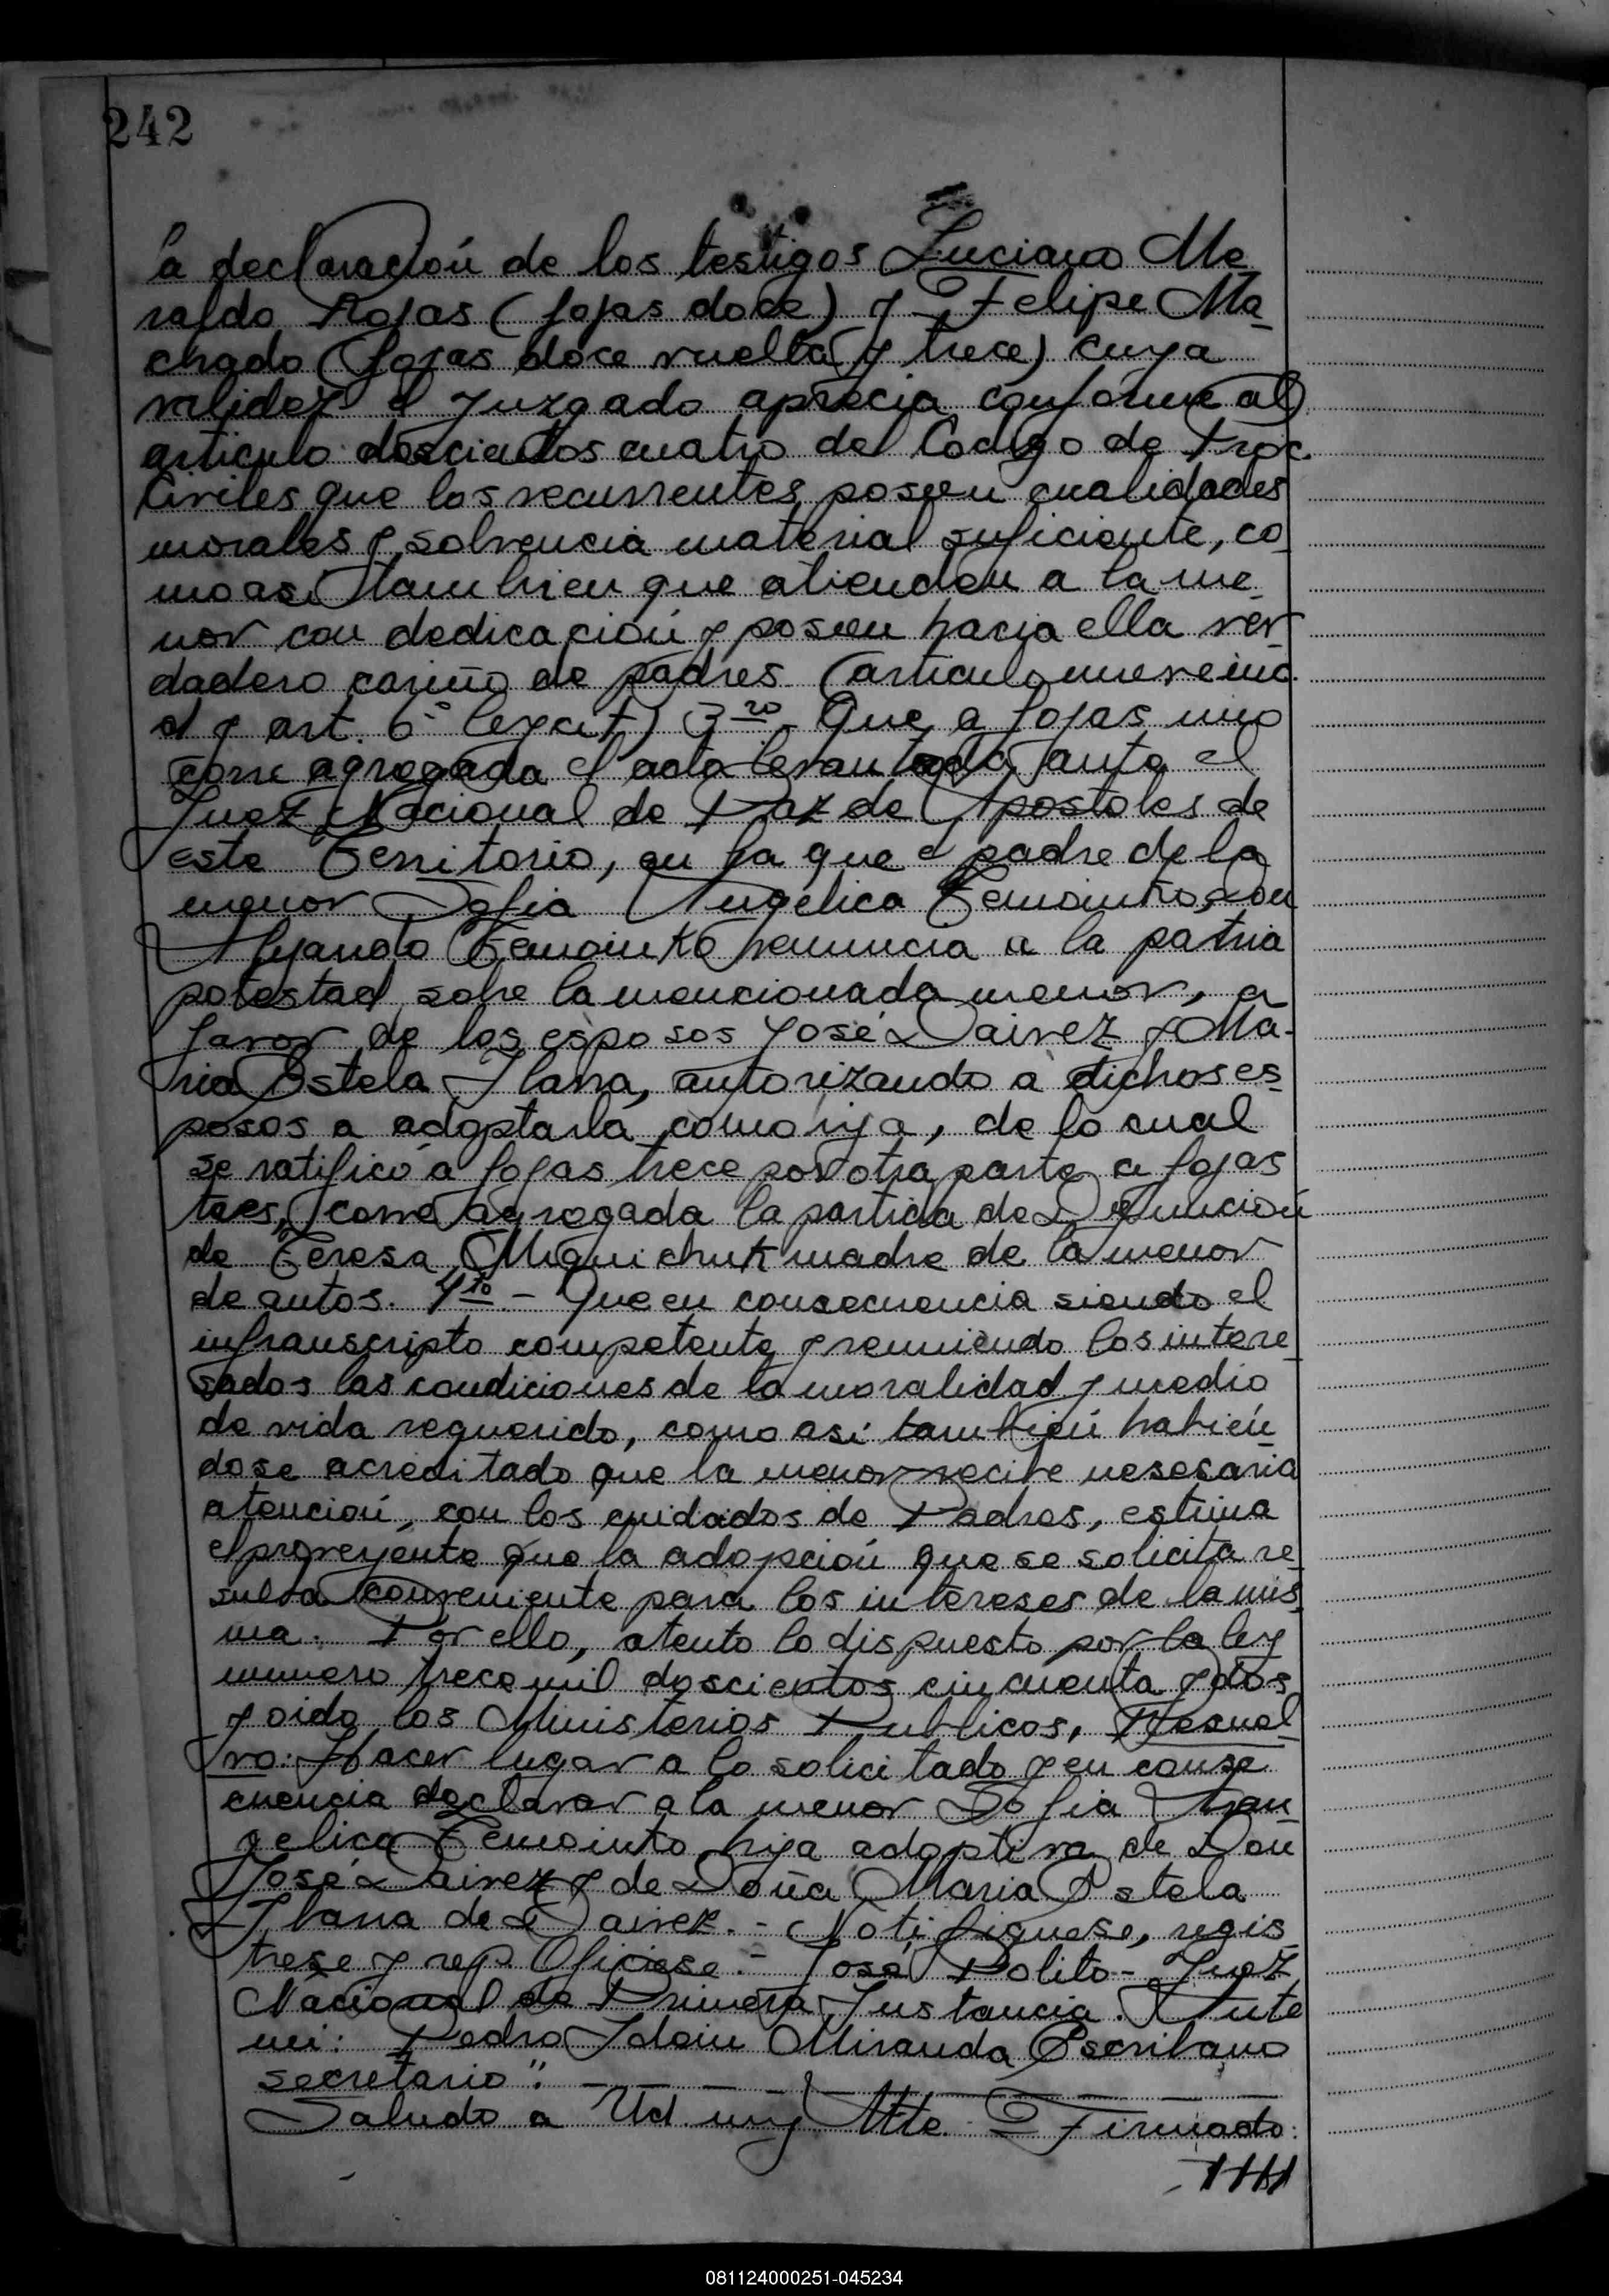 242
la declaración de los testigos Luciano Me-
raldo Rojas (fojas doce) y Felipe Ma-
chado (fojas doce vuelta y trece) cuya
validez el Juzgado aprecia conforme al
articulo doscientos cuatro del Codigo de Proc.
Civiles que los recurrentes poseen cualidades
morales y solvencia material suficiente, co-
mo asi tambien que atienden a la me-
nor con dedicación y poseen hacia ella ver
dadero cariño de padres (articulo nueve inc.
d y art. 6° ley cit) 3ro Que a fojas uno
corre agregada el acta levantada ante el
Juez Nacional de Paz de Apostoles de
este Territorio, en la que el padre de la
menor Sofia Angélica Temointko, Don
Alejandro Temointko renuncia a la patria
potestad sobre la mencionada menor, a
favor de los esposos José Dairez y Ma-
ria Estela Ibarra, autorizando a dichos es-
posos a adoptarla como hija, de lo cual
se ratificó a fojas trece por otra parte a fojas
tres, corre agregada la partida de Defunción
de Teresa Miquichuk madre de la menor
de autos. 4to - Que en consecuencia siendo el
infranscripto competente y reuniendo los intere-
sados las condiciones de la moralidad y medio
de vida requerido, como asi tambien habién-
dose acreditado que la menor recibe nesesaria
atención, con los cuidados de Padres, estima
el proveyente que la adopción que se solicita re-
sulta conveniente para los intereses de la mis-
ma. Por ello, atento lo dispuesto por la ley
numero trece mil doscientos cincuenta y dos
y oido los Ministerios Publicos, Resuel-
vo: Hacer lugar a lo solicitado y en conse
cuencia declarar a la menor Sofia An-
gelica Temointo, hija adoptiva de Don
José Dairez y de Doña Maria Estela
Ibarra de Dairez. - Notifiquese, regis-
trese y rep. Oficiese. - José Polito - Juez
Nacional de Primera Instancia. Ante
mi: Pedro Idoin Miranda Escribano
secretario".
Saludo a Ud. muy Atte. Firmado:
081124000251-045234